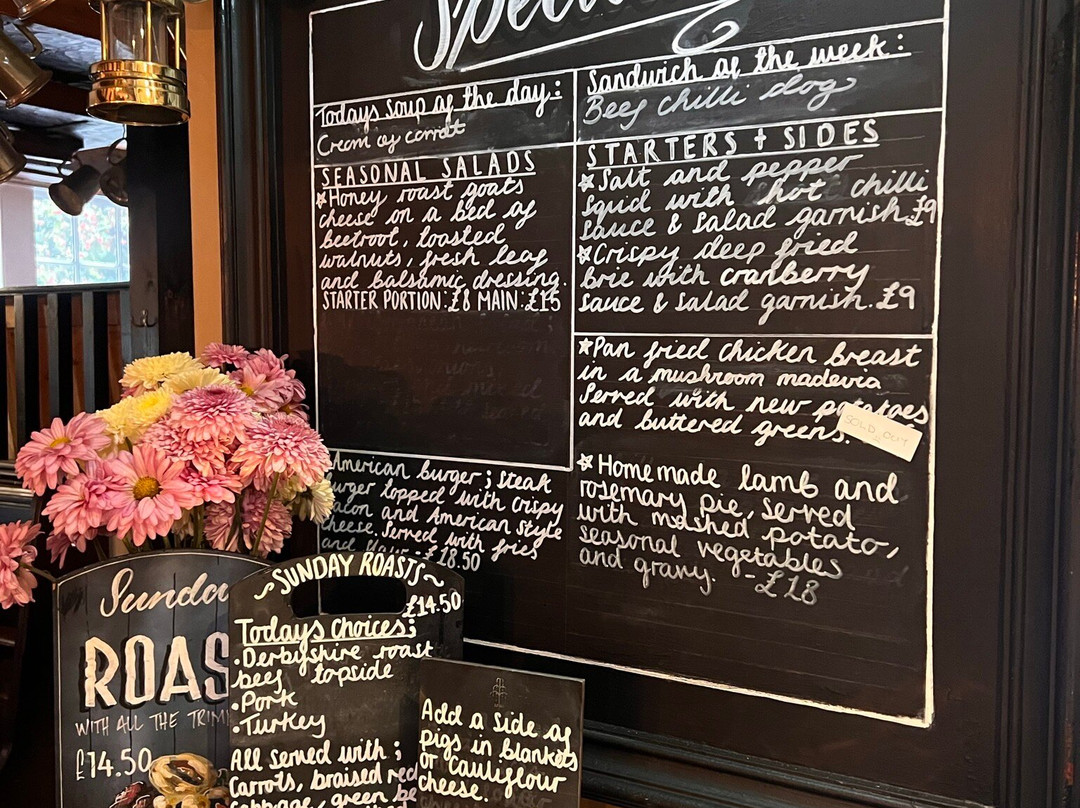 Todays Soup of the day:
Cream of carrot
SEASONAL SALADS
Honey roast goats
cheese on a bed of
beetroot, toasted
walnuts, fresh leaf
and balsamic dressing.
STARTER PORTION: £8 MAIN: £15
American burger; steak
burger topped with crispy
bacon and American style
cheese. Served with fries
£18.50
Sandwich of the week:
Beef chilli dog
STARTERS + SIDES
Salt and pepper
squid with hot chilli
sauce & salad garnish. £9
Crispy deep fried
brie with cranberry
sauce & salad garnish. £9
Pan fried chicken breast
in a mushroom madeira
Served with new potatoes
and buttered greens.
SOLD OUT
Homemade lamb and
rosemary pie, served
with mashed potato,
seasonal vegetables
and gravy. - £18
Sunda
ROAS
WITH ALL THE TRIM
£14.50
~SUNDAY ROASTS~
£14.50
Todays Choices;
•Derbyshire roast
beef topside
•Pork
•Turkey
All served with;
Carrots, braised red
cabbage, green be
Add a side of
pigs in blankets
or cauliflour
cheese.